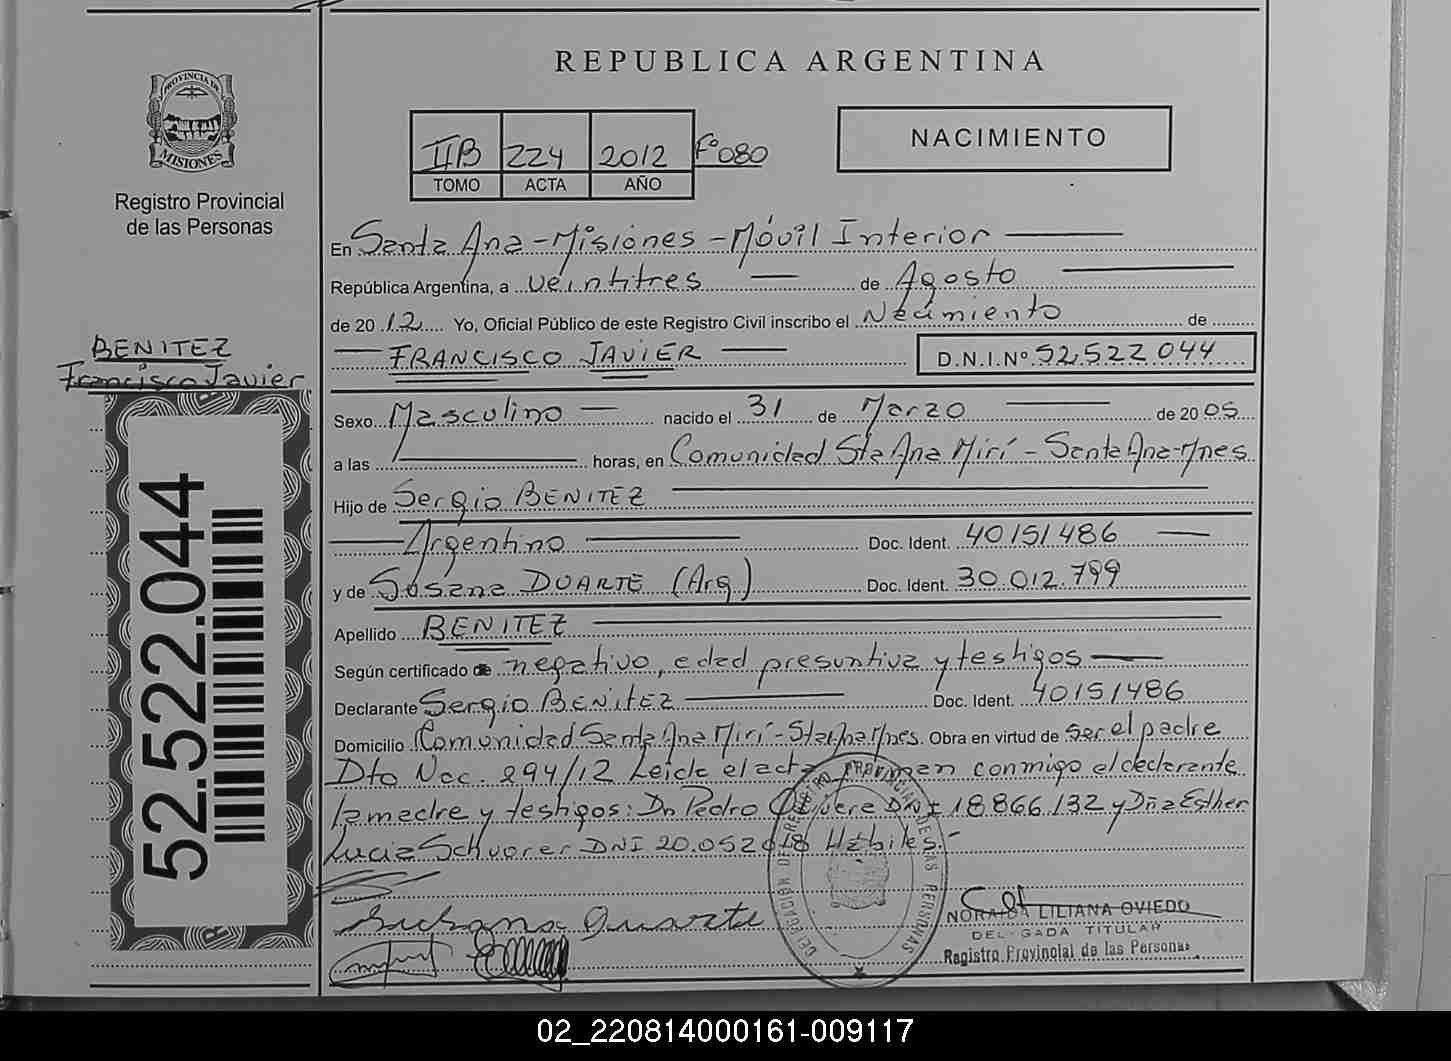 REPUBLICA ARGENTINA
PROVINCIA DE
MISIONES
Registro Provincial
de las Personas
IIB 224 2012 Fº080
TOMO ACTA AÑO
NACIMIENTO
En Santa Ana - Misiones - Móvil Interior
República Argentina, a veintitres de Agosto
de 2012 Yo, Oficial Público de este Registro Civil inscribo el Nacimiento de
FRANCISCO JAVIER D.N.I.Nº 52.522 044
BENITEZ
Francisco Javier
52.522.044
Sexo Masculino nacido el 31 de Marzo de 2005
a las horas, en Comunidad Sta Ana Mirí - Santa Ana - Mnes.
Hijo de Sergio BENITEZ
Argentino Doc. Ident. 40151486
y de Susana DUARTE (Arg) Doc. Ident. 30.012.799
Apellido BENITEZ
Según certificado de negativo, edad presuntiva y testigos
Declarante Sergio BENITEZ Doc. Ident. 40151486
Domicilio Comunidad Santa Ana Mirí - Sta Ana Mnes. Obra en virtud de ser el padre
Dto Nac. 294/12 Leida el acta firman conmigo el declarante
la madre y testigos: Dn Pedro DNI 18866.132 y Dña Esther
Lucia DNI 20.052 Hábiles.-
Duarte
DELEGACIÓN DEL REGISTRO PROVINCIAL DE LAS PERSONAS
NORAIDA LILIANA OVIEDO
DELEGADA TITULAR
Registro Provincial de las Personas
02_220814000161-009117